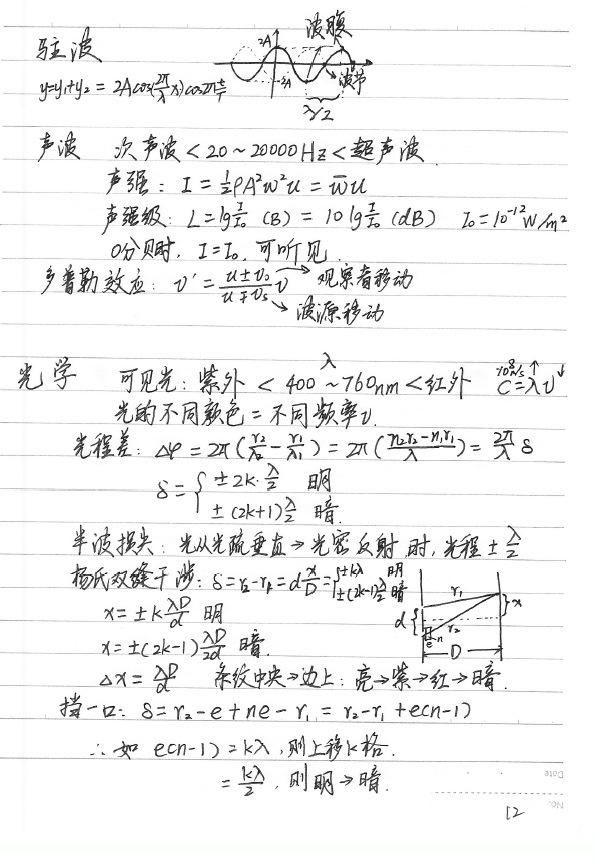 驻波
波腹
2A
-2A
波节
λ/2
y=y₁+y₂ = 2Acos(2π/λ x)cos2π t/T
声波 次声波 < 20 ~ 20000Hz < 超声波.
声强: I = ½ρA²w²u = w̄u
声强级: L = lg I/I₀ (B) = 10 lg I/I₀ (dB) I₀ = 10⁻¹² W/m²
0分贝时, I = I₀, 可听见.
多普勒效应: υ' = (u±υ₀)/(u∓υs) υ → 观察者移动
→ 波源移动
光学 可见光: 紫外 < 400 ~ 760nm < 红外 C = λυ
λ
10⁸m/s
光的不同颜色 = 不同频率υ.
光程差: Δφ = 2π(r₂/λ₂ - r₁/λ₁) = 2π((n₂r₂-n₁r₁)/λ) = 2π/λ δ
δ = { ±2k·λ/2 明
±(2k+1)λ/2 暗.
半波损失: 光从光疏垂直→光密反射时, 光程±λ/2
杨氏双缝干涉: δ = r₂-r₁ = d x/D = { ±kλ 明
±(2k-1)λ/2 暗
x = ±k λD/d 明
x = ±(2k-1) λD/2d 暗.
r₁
x
d
r₂
n
e
D
Δx = λD/d 条纹中央→边上: 亮→紫→红→暗.
挡一口: δ = r₂-e+ne-r₁ = r₂-r₁+e(n-1)
∴如 e(n-1) = kλ, 则上移k格.
= kλ/2, 则明→暗.
Date
No.
12